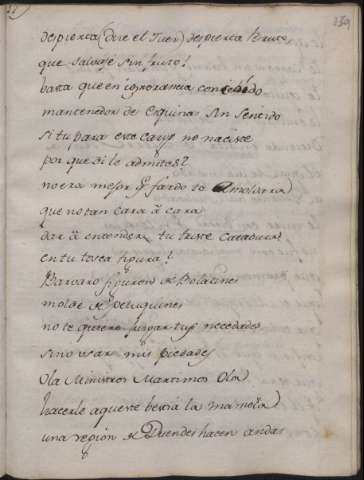 239
despierta (dice el Juez) despierta Bruto
que salvaje sin fruto!
basta que en ignorancia convertido
mantenedor de Esquina sin sentido
si tu para este cargo no naciste
por que di le admites?
no era mejor q fardo to Amoldara
que no tan cara à cara
dar à entender tu triste catadura
en tu tosca figura!
Barvaro figuron de Bolatines
molde de petuquines
no te quiero juzgar tus necedades
sino usar mis piedades
Ola Ministros Martimos Ola
hacerle aqueste bestia la mamola
una región de Duendes hacen andas